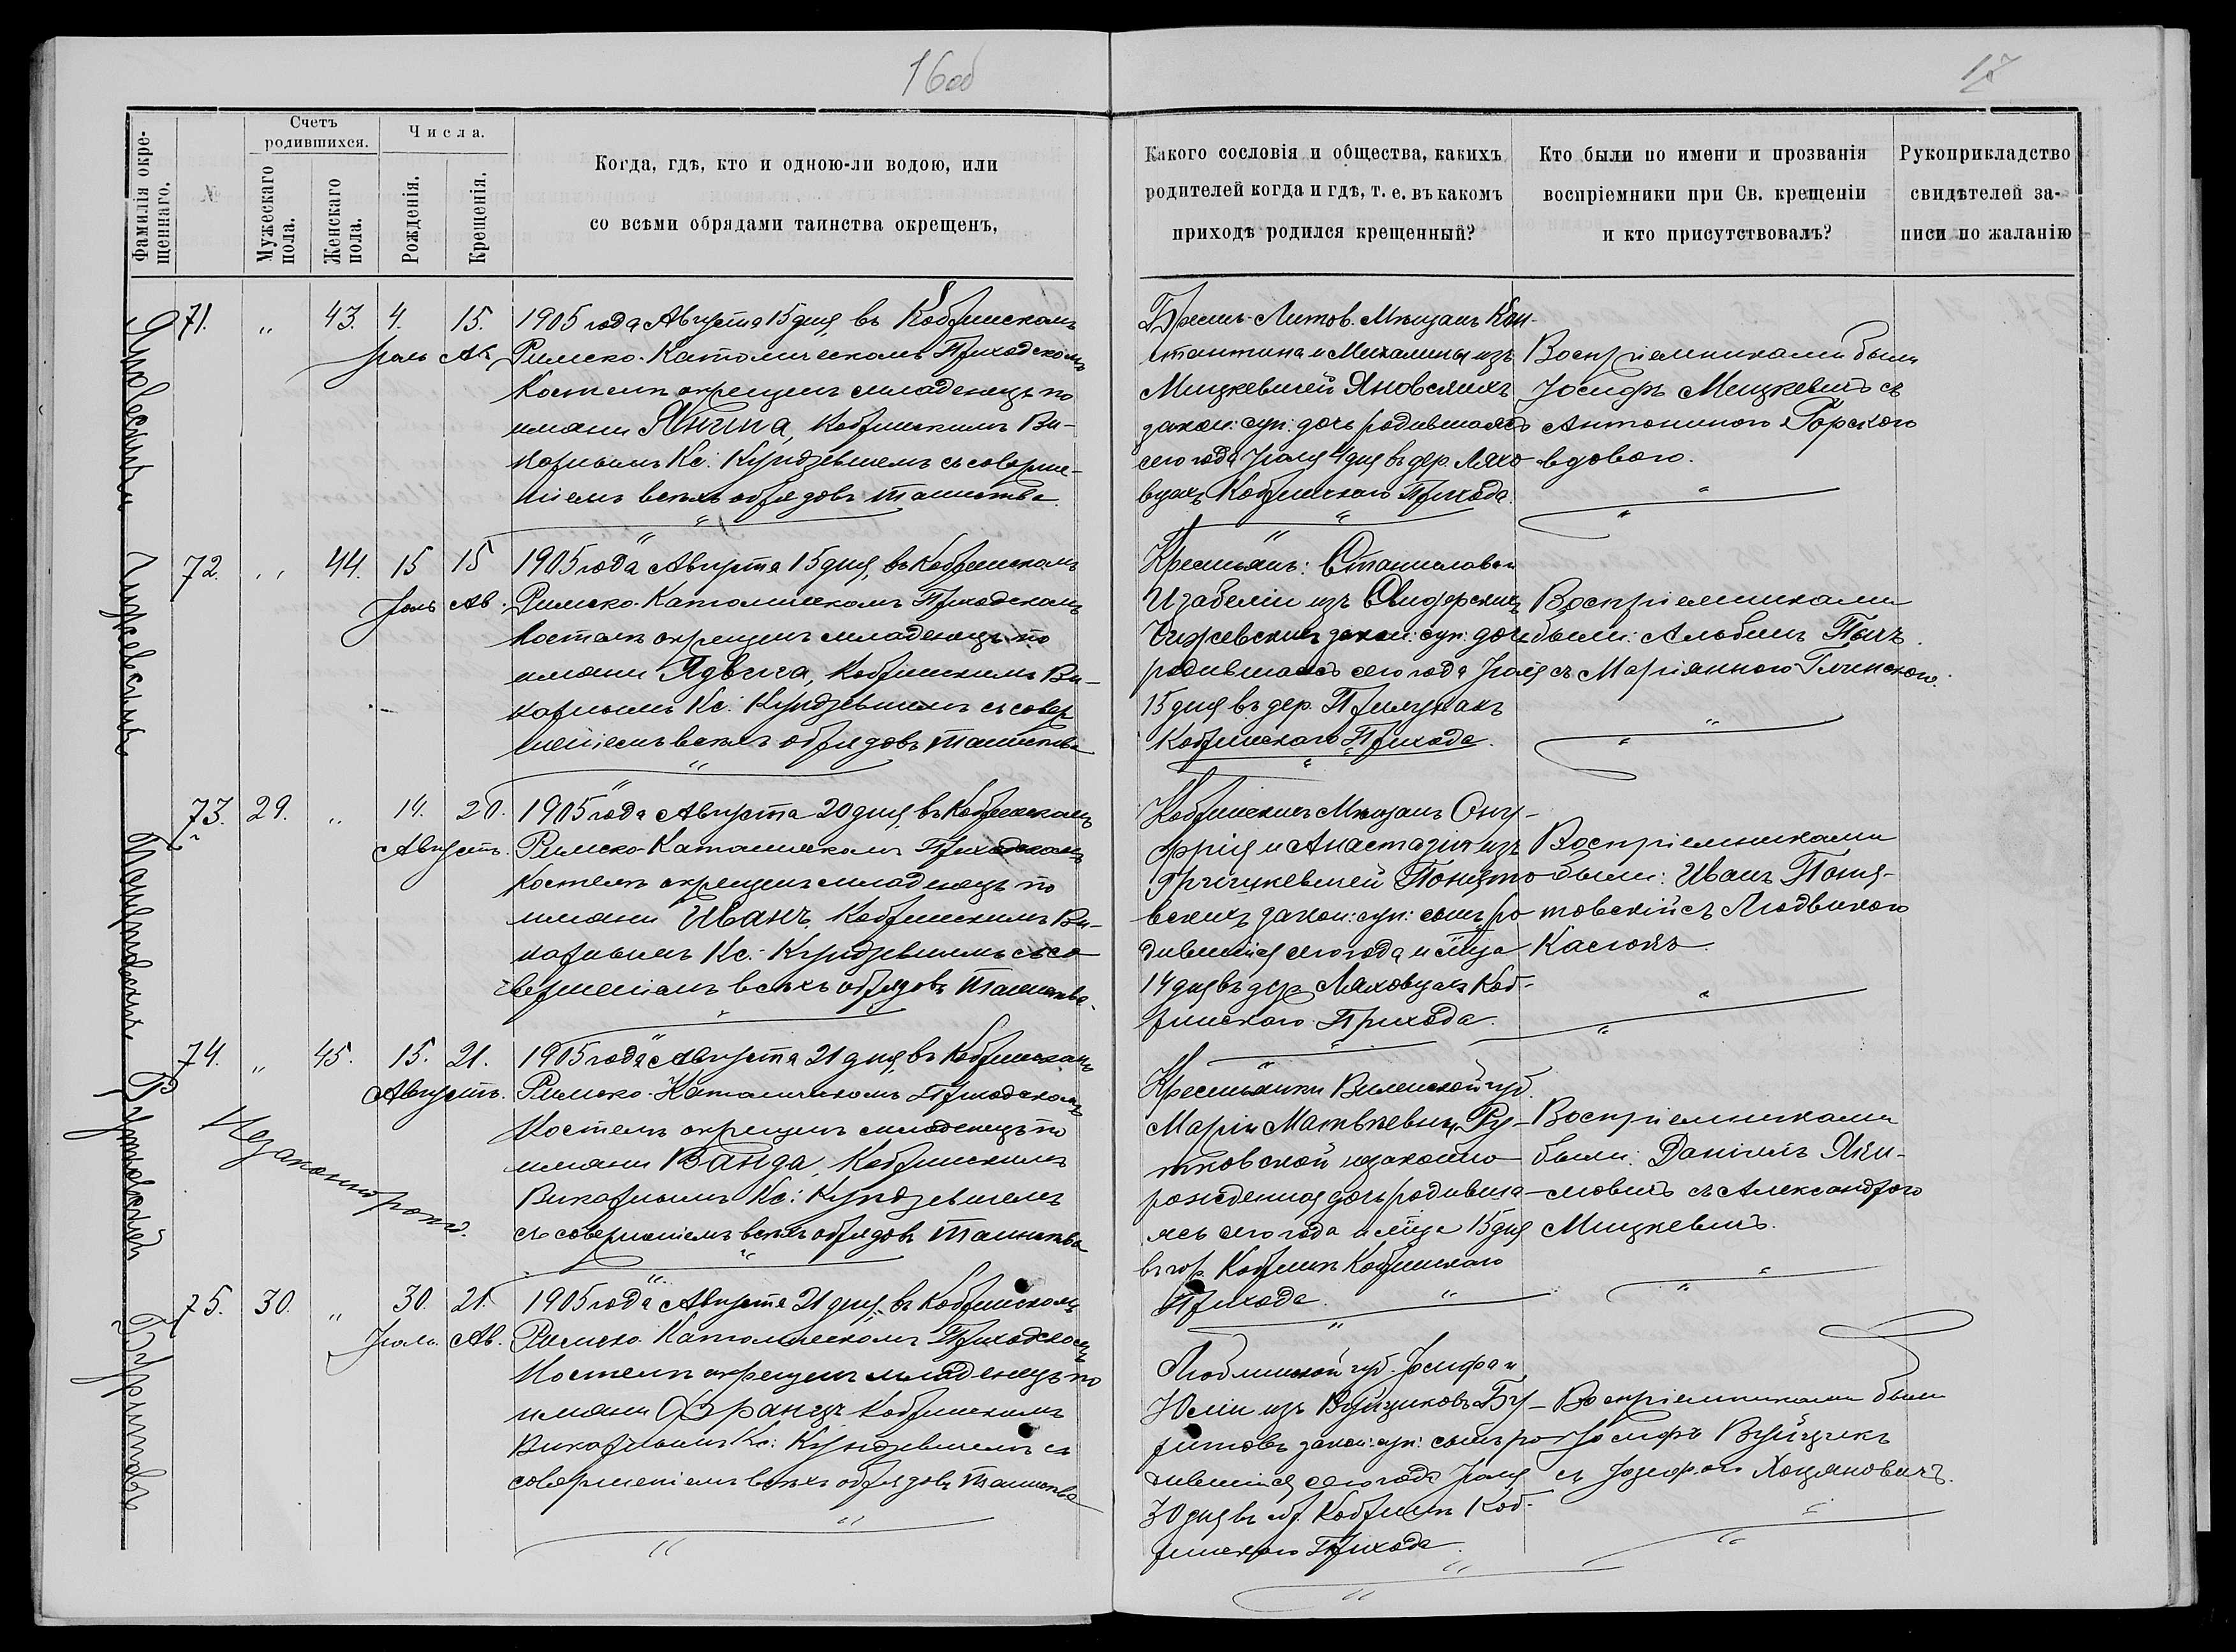 16об
17
Фамилія окре-
щеннаго.
№
Счетъ
родившихся.
Мужескаго
пола.
Женскаго
пола.
Числа.
Рожденія.
Крещенія.
Когда, гдѣ, кто и одною-ли водою, или
со всѣми обрядами таинства окрещенъ,
Какого сословія и общества, какихъ
родителей когда и гдѣ, т. е. въ какомъ
приходѣ родился крещенный?
Кто были по имени и прозванія
воспріемники при Св. крещеніи
и кто присутствовалъ?
Рукоприкладство
свидѣтелей за-
писи по жаланію
71. " 43. 4. 15.
Іюль Ав.
1905 года Августа 15 дня, въ Кобринскомъ
Римско-Католическомъ Приходскомъ
Костелѣ окрещенъ младенецъ по
имени Янина, Кобринскимъ Ви-
карнымъ Кс: Кундзевичемъ съ соверше-
ніемъ всѣхъ обрядовъ таинства.
Брестъ-Литов. Мѣщанъ Кон-
стантина и Михалины изъ
Мицкевичей Яновскихъ
закон: суп: дочь родившаяся
сего года Іюля 4 дня въ дер. Ляхо
вцахъ Кобринскаго Прихода.
Воспріемниками были
Іосифъ Мицкевичъ съ
Антониною Горскою
вдовою.
72. " 44. 15 15
Іюль Ав.
Чижевскихъ
1905 года Августа 15 дня, въ Кобринскомъ
Римско-Католическомъ Приходскомъ
Костелѣ окрещенъ младенецъ по
имени Ядвига, Кобринскимъ Ви-
карнымъ Кс: Кундзевичемъ съ совер
шеніемъ всѣхъ обрядовъ таинства
Крестьянъ: Станислава и
Изабеліи изъ Свидерскихъ
Чижевскихъ закон: суп: дочь
родившаяся сего года Іюля
15 дня въ дер. Прилукахъ
Кобринскаго Прихода.
Воспріемниками
были: Альбинъ Пыхъ
съ Маріанною Глинскою.
73. 29. " 14. 20.
Августъ.
1905 года Августа 20 дня, въ Кобринскомъ
Римско-Католическомъ Приходскомъ
Костелѣ окрещенъ младенецъ по
имени Иванъ, Кобринскимъ Ви-
карнымъ Кс: Кундзевичемъ съ со
вершеніемъ всѣхъ обрядовъ таинства.
Кобринскихъ Мѣщанъ Ону-
фрія и Анастазіи изъ
Понято
вскихъ закон: суп: сынъ ро
дившійся сего года и м-ца
14 дня въ дер. Ляховцахъ Коб-
ринскаго Прихода.
Воспріемниками
были: Иванъ Поня-
товскій съ Людвикою
Касюкъ
74. " 45. 15. 21.
Августъ.
Рутковской
Незаконнорожд.
1905 года Августа 21 дня, въ Кобринскомъ
Римско-Католическомъ Приходскомъ
Костелѣ окрещенъ младенецъ по
имени Ванда, Кобринскимъ
Викарнымъ Кс: Кундзевичемъ
съ совершеніемъ всѣхъ обрядовъ таинства
Крестьянки Виленской губ.
Маріи Матвѣевны Ру-
тковской незаконно
рожденная дочь родивша-
яся сего года и м-ца 15 дня
въ гор. Кобринѣ Кобринскаго
Прихода.
Воспріемниками
были: Даніилъ Яки-
мовичъ съ Александрою
Мицкевичъ.
75. 30. " 30. 21.
Іюль. Ав.
1905 года Августа 21 дня, въ Кобринскомъ
Римско-Католическомъ Приходскомъ
Костелѣ окрещенъ младенецъ по
имени Францъ Кобринскимъ
Викарнымъ Кс: Кундзевичемъ съ
совершеніемъ всѣхъ обрядовъ таинства
Люблинской губ. Іосифа и
Юліи изъ Вуйциковъ Бу-
закон: суп: сынъ ро
дившійся сего года Іюля
30 дня въ Кобринѣ Коб-
ринскаго Прихода.
Воспріемниками были
Іосифъ Вуйцикъ
съ Іозефою